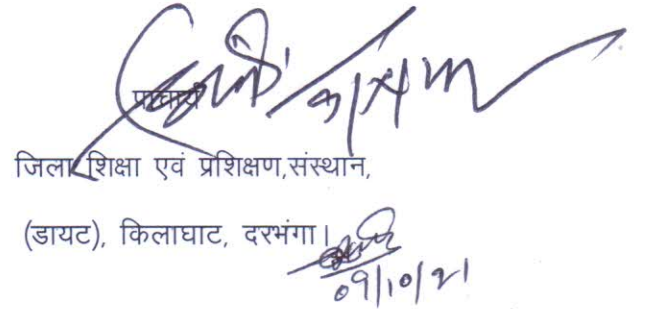 प्राचार्य
जिला शिक्षा एवं प्रशिक्षण,संस्थान,
(डायट), किलाघाट, दरभंगा।
09/10/21